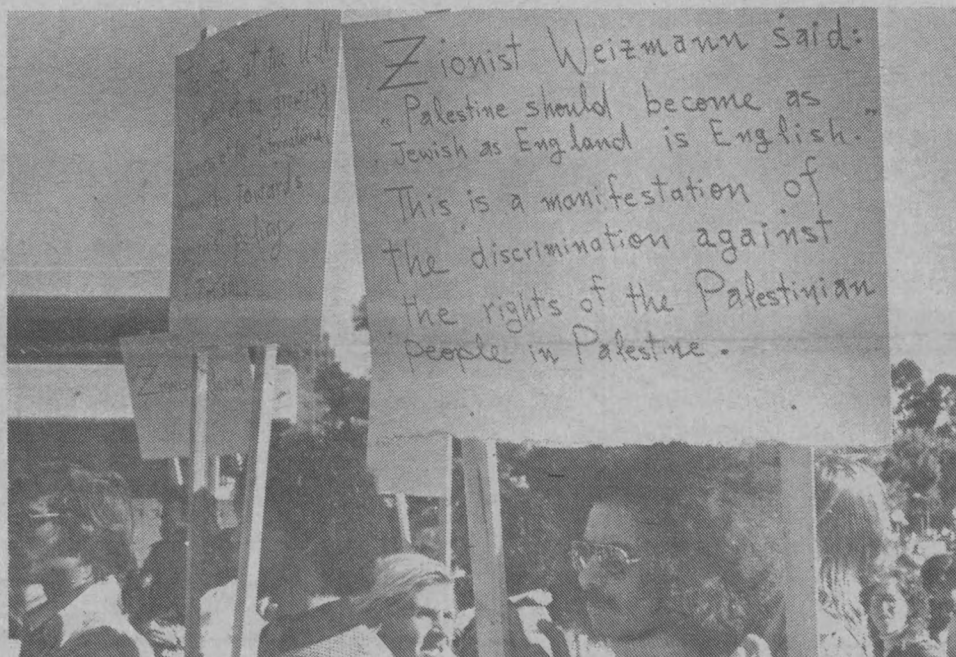 at the U.N.
of the growing
of the international
towards
policy
Zionist Weizmann said:
"Palestine should become as
Jewish as England is English."
This is a manifestation of
the discrimination against
the rights of the Palestinian
people in Palestine.